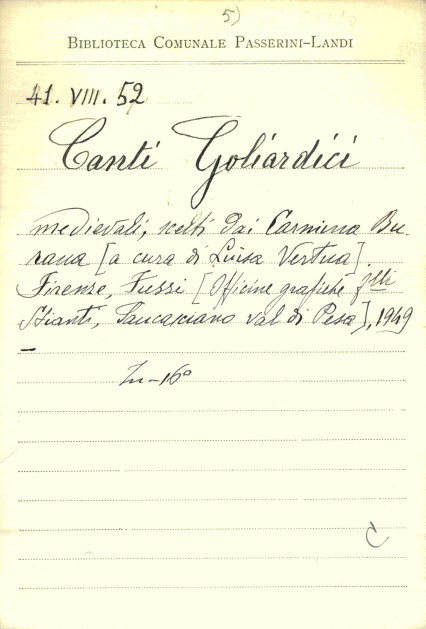 5)
BIBLIOTECA COMUNALE PASSERINI-LANDI
41. VIII. 52
Canti Goliardici
medievali, scelti dai Carmina Bu-
rana [a cura di Luisa Vertua].
Firenze, Fussi [Officine grafiche f.lli
Stianti, Sancasciano val di Pesa], 1949
-
In-16°
C